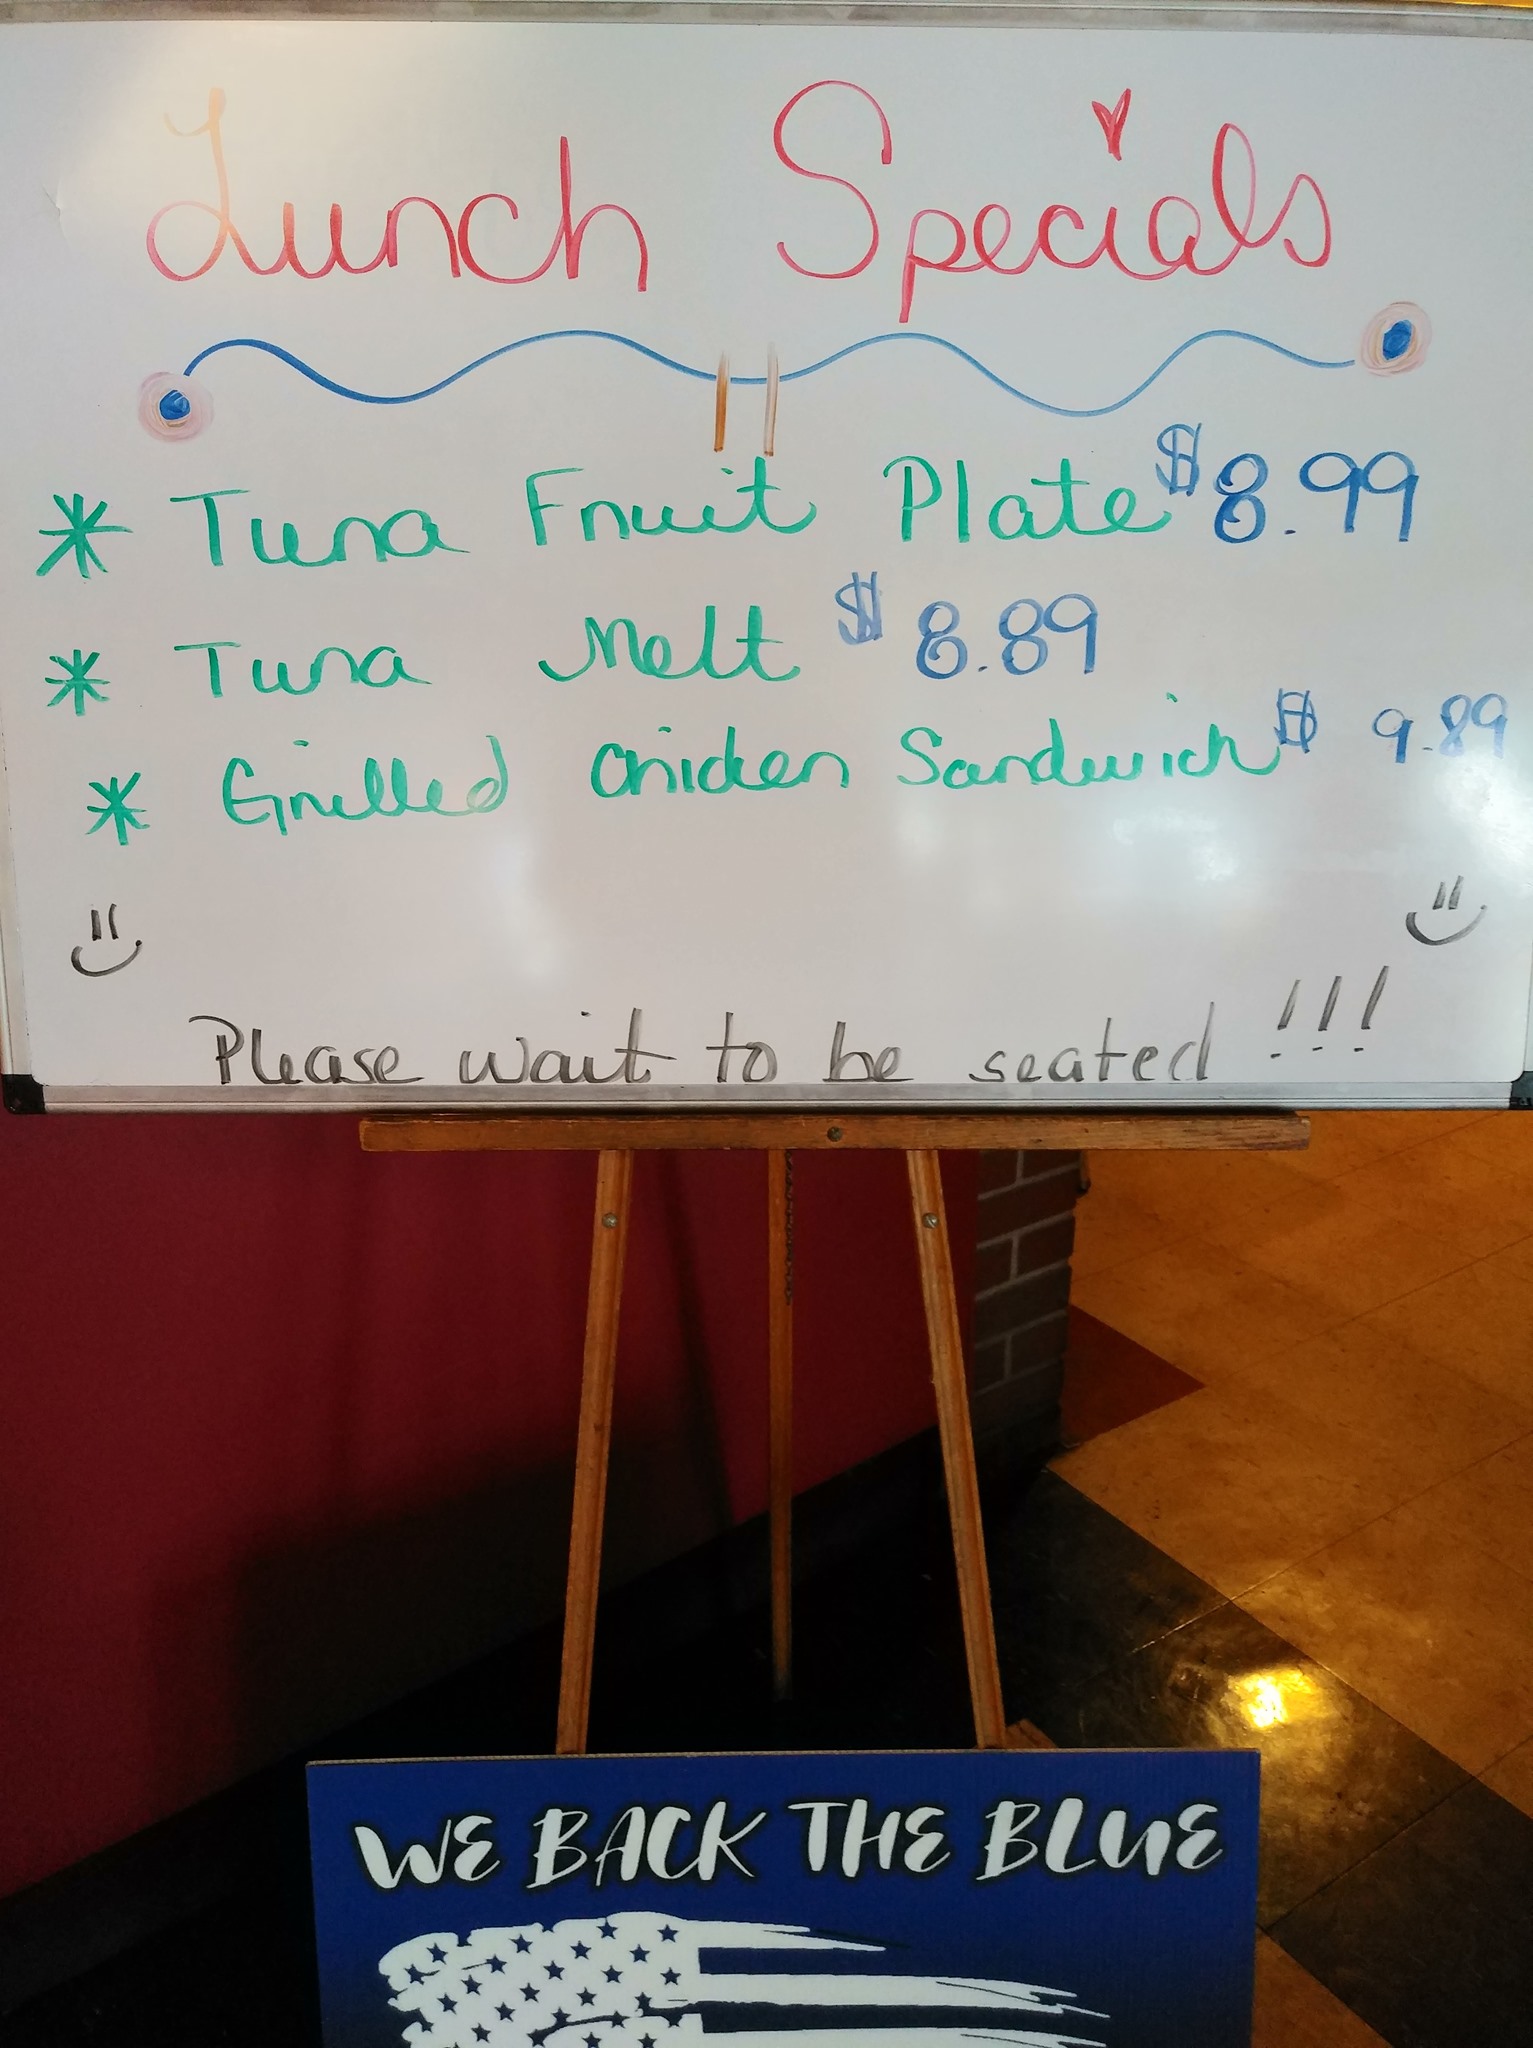 Lunch Specials
* Tuna Fruit Plate $8.99
* Tuna Melt $8.89
* Grilled Chicken Sandwich $9.89
Please wait to be seated !!!
WE BACK THE BLUE